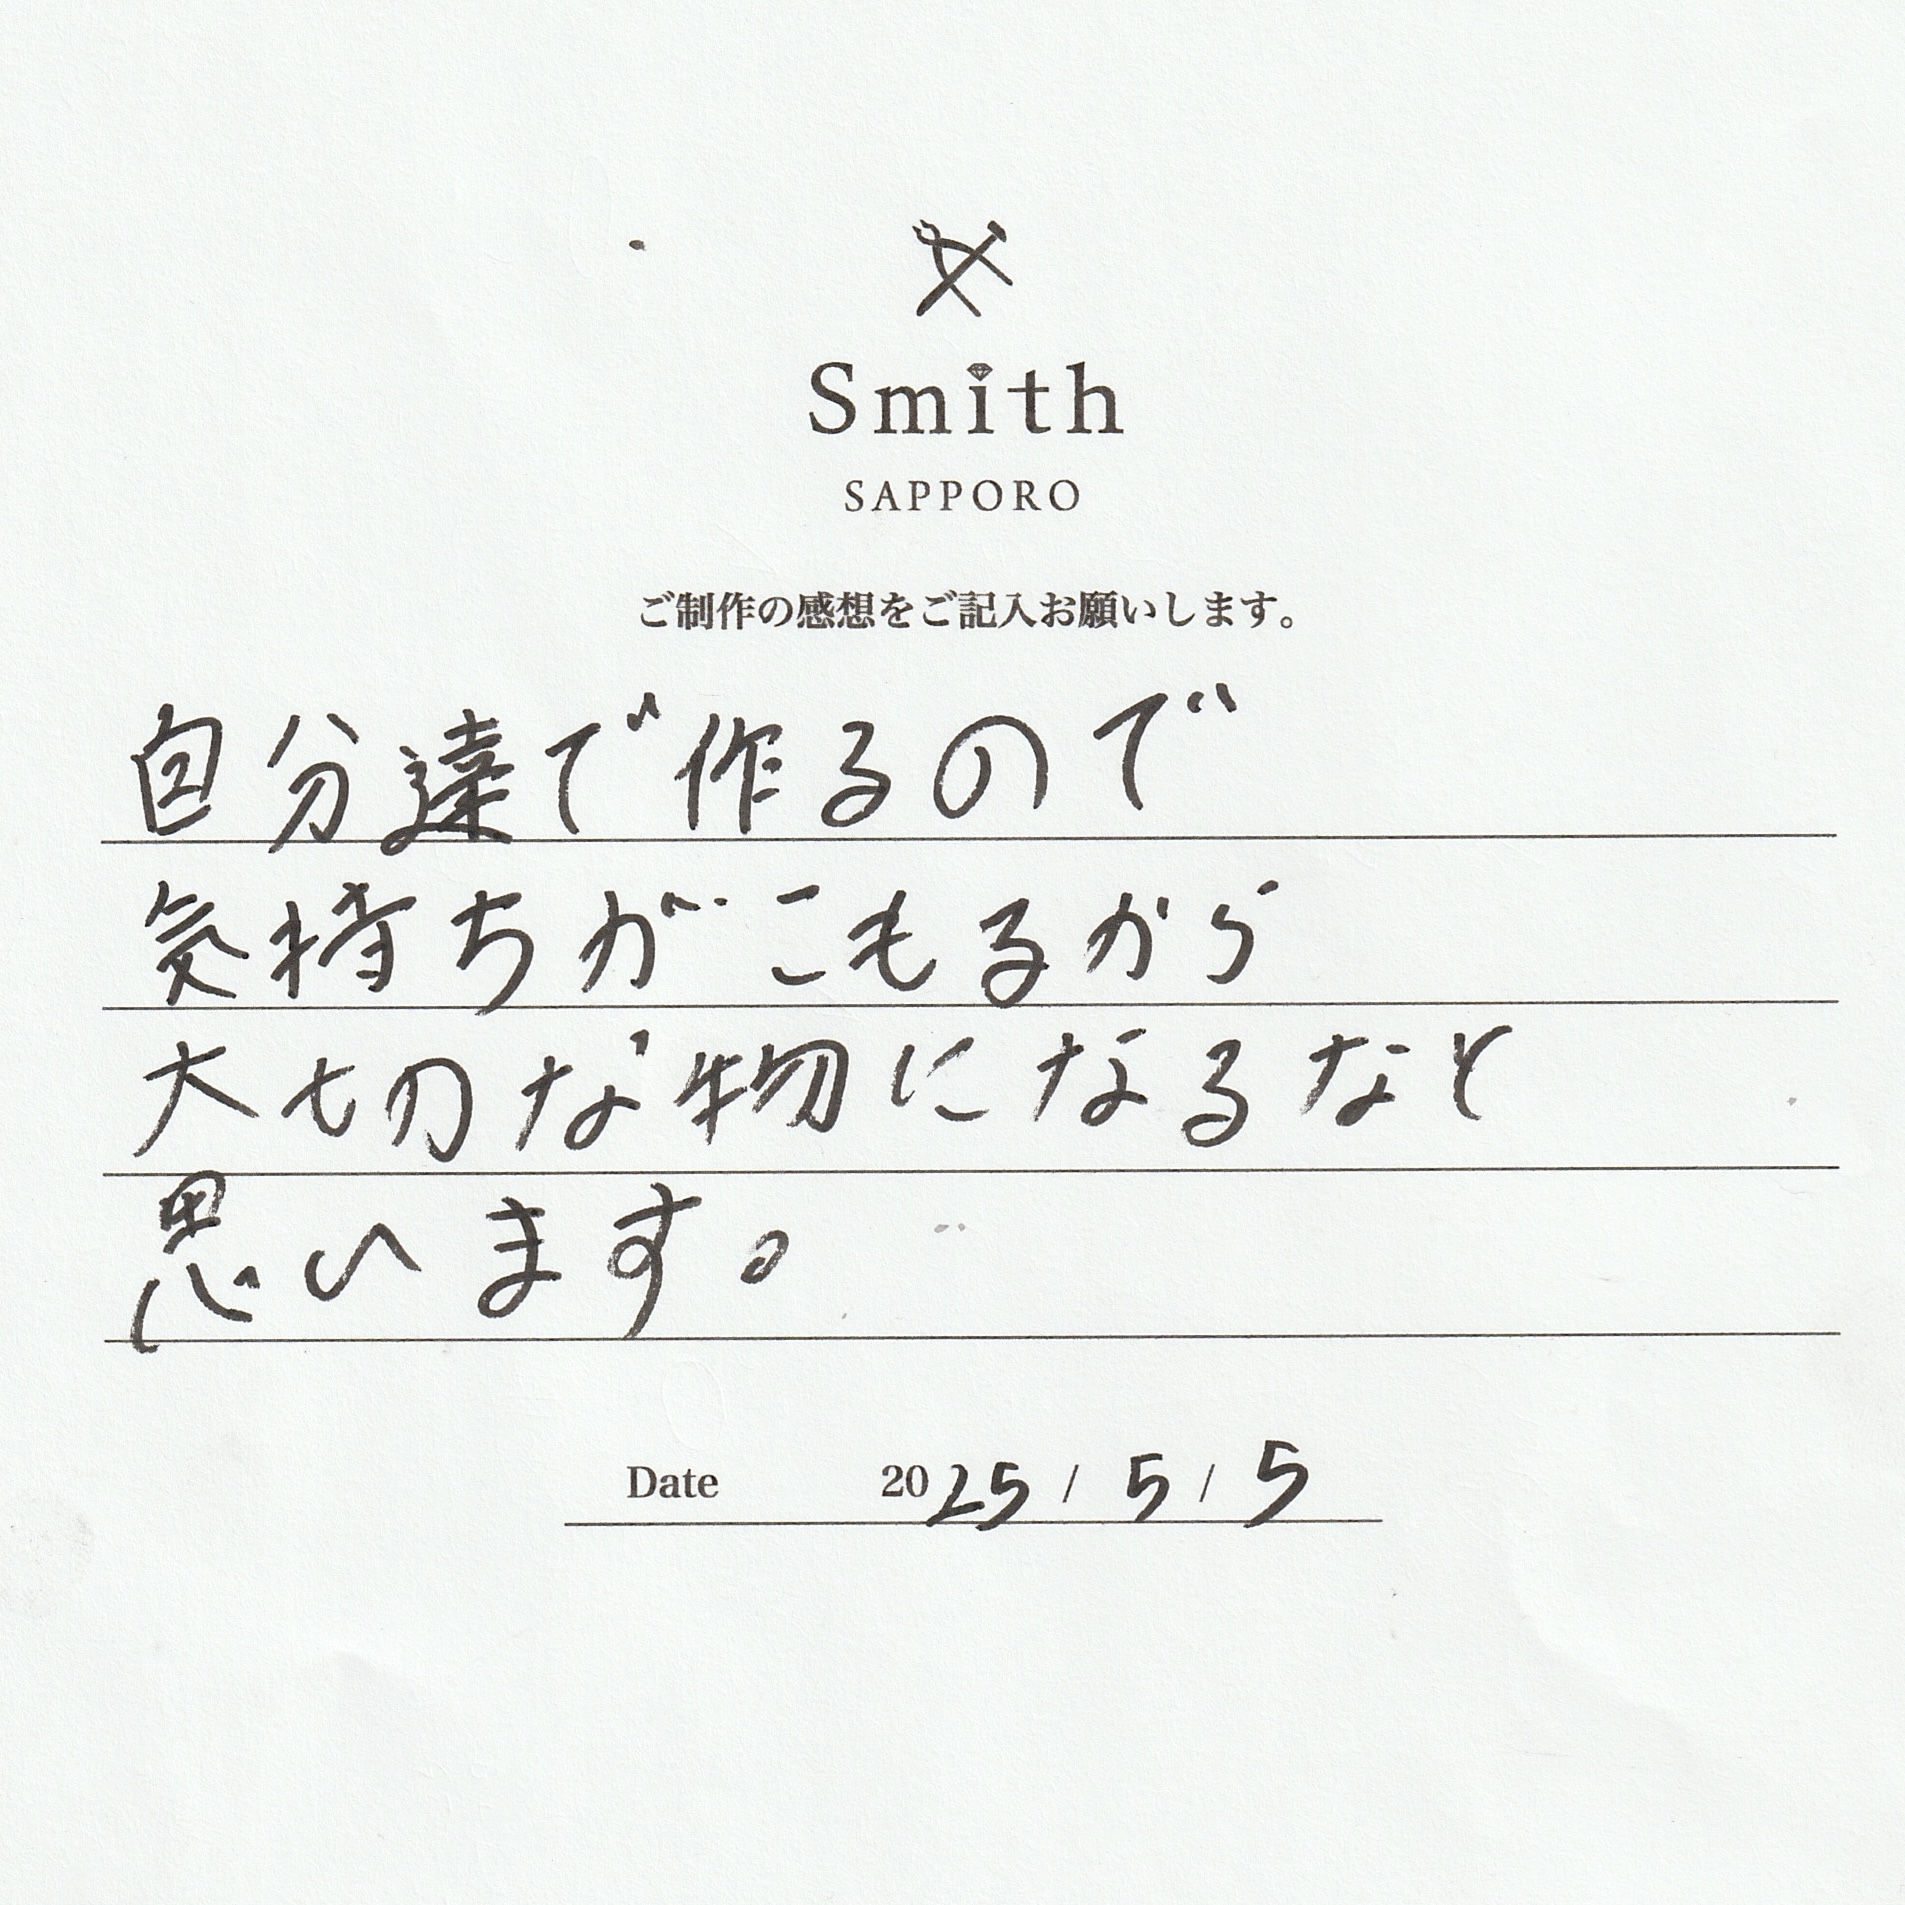 Smith
SAPPORO
ご制作の感想をご記入お願いします。
自分達で作るので
気持ちがこもるから
大切な物になるなと
思います。
Date 2025 / 5 / 5